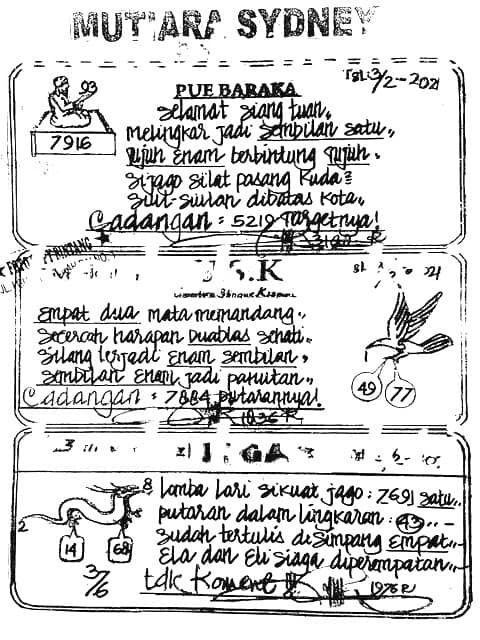 MUTIARA SYDNEY
PUE BARAKA
Tgl: 3/2-2021
93
7916
Selamat siang tuan,,
melingkar jadi sembilan satu,,
Tujuh enam berbintung Tujuh,
Sijago silat pasang kuda²
Suit-siulan dibatas kota,,
Cadangan: 5219 Targetnya!
S.K
Empat dua mata memandang,,
Secercah harapan Duablas sehati.
Silang terjadi enam sembilan,
Sembilan enam jadi panutan,,
Cadangan: 7884 putarannya!
1836 R
49
77
Lomba lari sikuat jago: 7691 satu,,
putaran dalam lingkaran: 43,,-
Sudah tertulis disimpang empat,,-
Ela dan Eli siaga diperempatan,,
tdk koment
1976 R
8
2
14
68
3/6